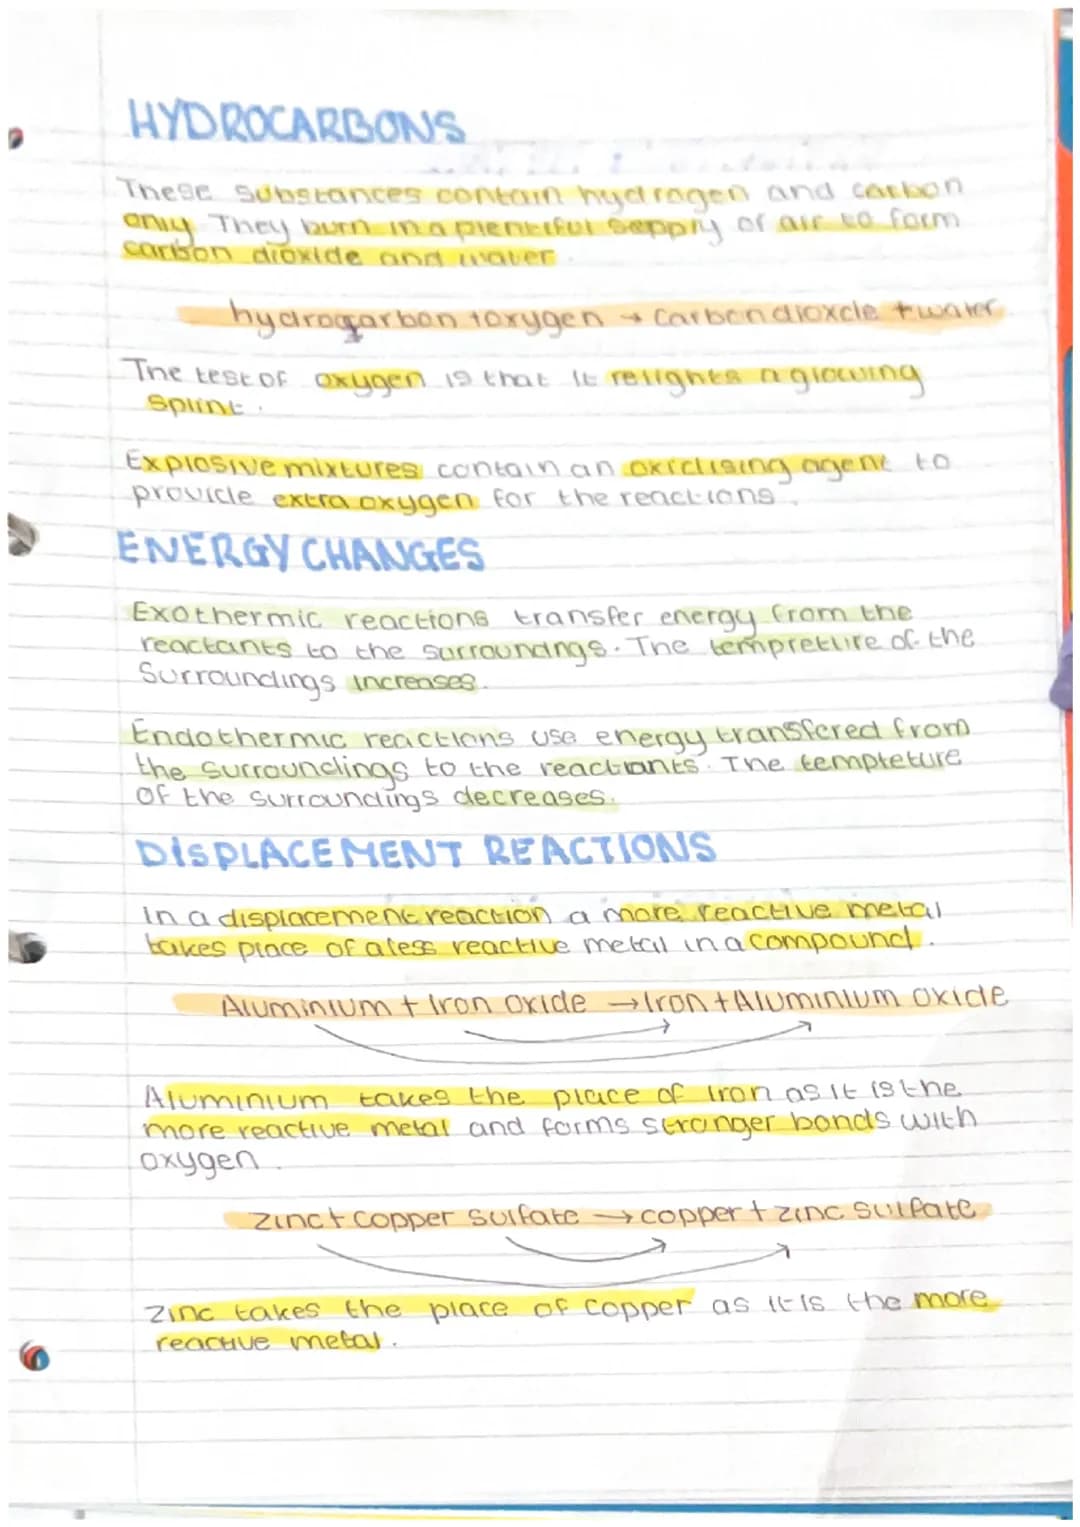 HYDROCARBONS
These substances contain hydrogen and carbon
only. They burn in a plentiful sepply of air to form
carbon dioxide and water.
hydrogarbon + oxygen → Carbon dioxcle + water
The test of oxygen is that it relights a glowing
splint.
Explosive mixtures contain an oxidising agent to
provide extra oxygen for the reactions.
ENERGY CHANGES
Exothermic reactions transfer energy from the
reactants to the surroundings. The tempretture of the
Surroundings increases.
Endothermic reactions use energy transfered from
the surroundings to the reactants. The tempteture
of the surroundings decreases.
DISPLACEMENT REACTIONS
In a displacement reaction a more reactive metal
takes place of a less reactive metal in a compound.
Aluminium + Iron oxide → Iron + Aluminium oxide
Aluminium takes the place of iron as it is the
more reactive metal and forms stronger bonds with
oxygen.
Zinc + Copper sulfate → copper + zinc sulfate
Zinc takes the place of copper as it is the more
reactive metal.